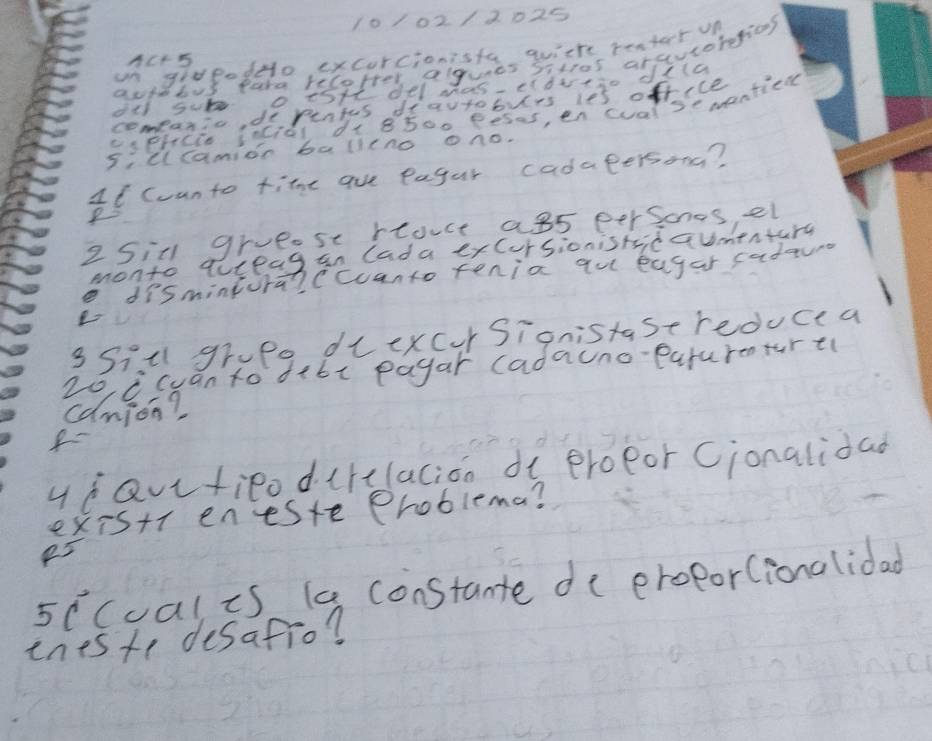 10/02/2025
Act 5
un grupo de 40 excurcionista quiere rentar un
autobus para recorrer algunos sitios arqueologicos
del sur o este del pais. el dueño de la
compania de rentas de autobuses les ofrece
un precio social de 8500 pesos, en cual se mantiene
si el camion ba lleno o no.
1 ¿Cuanto tiene que pagar cada persona?
R=
2 Si el grupo se reduce a 35 personas, el
monto que pagan cada excursionista ¿aumentara
o disminuira? ¿Cuanto tenia que pagar cada uno
R=
3 Si el grupo de excursionista se reduce a
20 ¿cuanto debe pagar cada uno para rentar el
camion?
R=
4 ¿Que tipo de relación de proporcionalidad
existe en este Problema?
R=
5 ¿Cual es la constante de proporcionalidad
en este desafio?